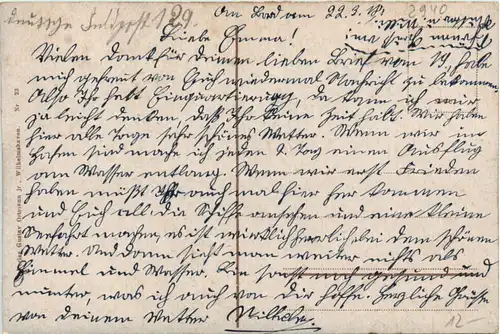 deutsche Feldpost 129.
An Bord am 22.3.
2940
Liebe Emma!
Vielen Dank für Deinen lieben Brief vom 19. habe
mich gefreut von Euch wiedermal Nachricht zu bekommen.
Also Ihr habt Einquartierung, da kann ich mir
ja leicht denken, daß Ihr keine Zeit habt. Wir haben
hier alle Tage sehr schönes Wetter. Wenn wir im
Hafen sind mache ich jeden 2. Tag einen Ausflug
am Wasser entlang. Wenn wir erst Frieden
haben müßt Ihr auch mal hier her kommen
und Euch all die Schiffe ansehen und eine kleine
Seefahrt machen, es ist wirklich herrlich bei dem schönen
Wetter. Und dann sieht man weiter nichts als
Himmel und Wasser. Bin sonst noch gesund und
munter, was ich auch von Dir hoffe. Herzliche Grüße
von deinem Vetter Wilhelm.
12-
Gustav Ottens jr., Wilhelmshaven. Nr. 23